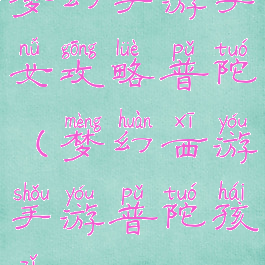 梦幻手游手
nǚ gōng luè pǔ tuó
女攻略普陀
mèng huàn xī yóu
（梦幻西游
shǒu yóu pǔ tuó hái
手游普陀孩